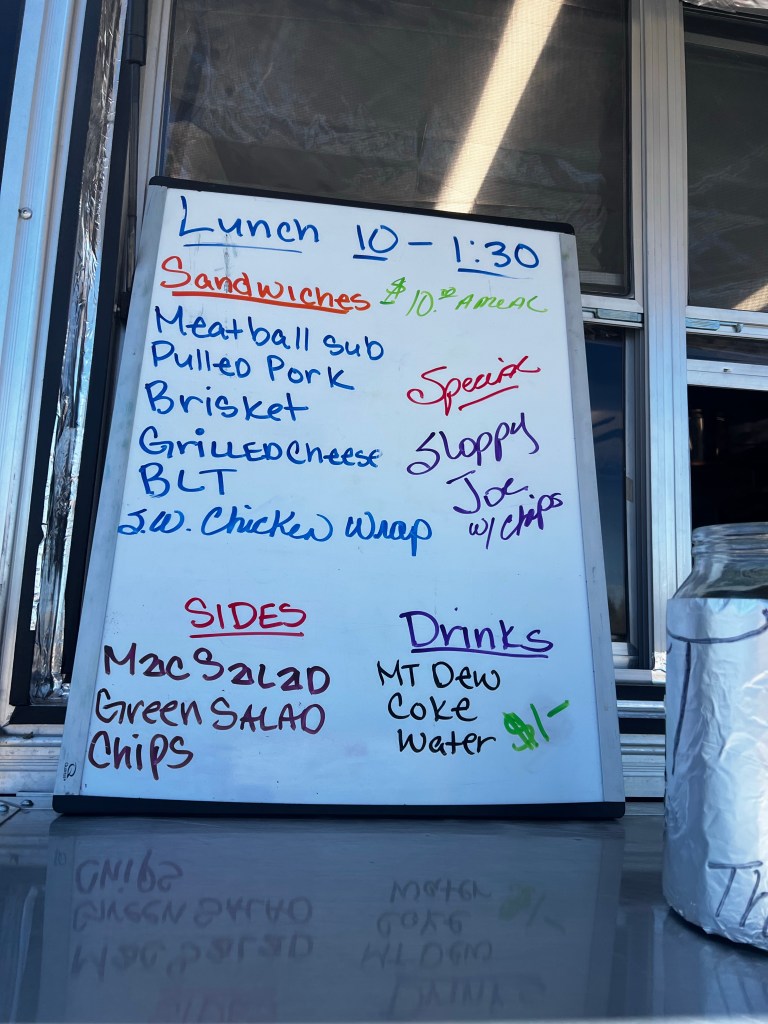 Lunch 10 - 1:30
Sandwiches $10.00 A MEAL
Meatball sub
Pulled Pork
Brisket
Grilled Cheese
BLT
S.W. Chicken Wrap
Special
Sloppy
Joe
w/ chips
SIDES
Mac Salad
Green SALAD
Chips
Drinks
MT Dew
Coke
Water $1-